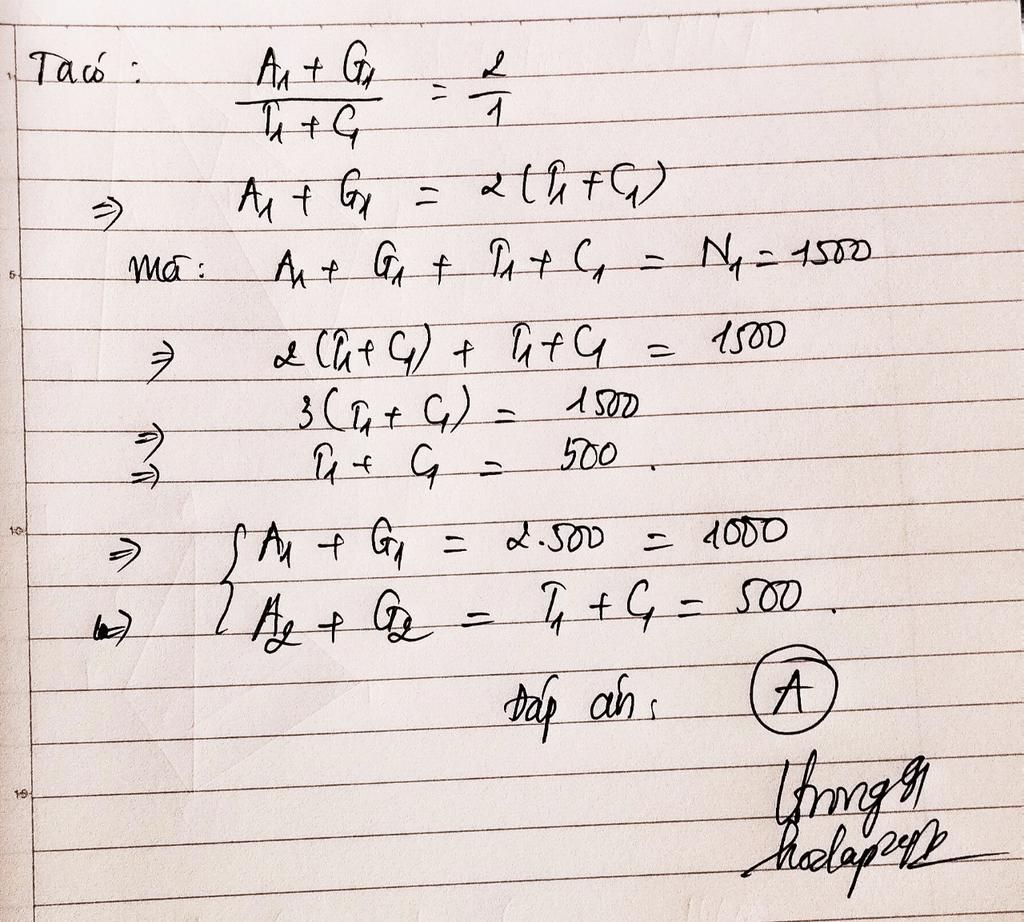 Ta có : (A₁ + G₁)/(T₁ + C₁) = 2/1
⇒ A₁ + G₁ = 2 (T₁ + C₁)
Mà : A₁ + G₁ + T₁ + C₁ = N₁ = 1500
⇒ 2 (T₁ + C₁) + T₁ + C₁ = 1500
⇒ 3 (T₁ + C₁) = 1500
⇒ T₁ + C₁ = 500 .
⇒ { A₁ + G₁ = 2.500 = 1000
⇒ A₂ + G₂ = T₁ + C₁ = 500 .
Đáp án : A